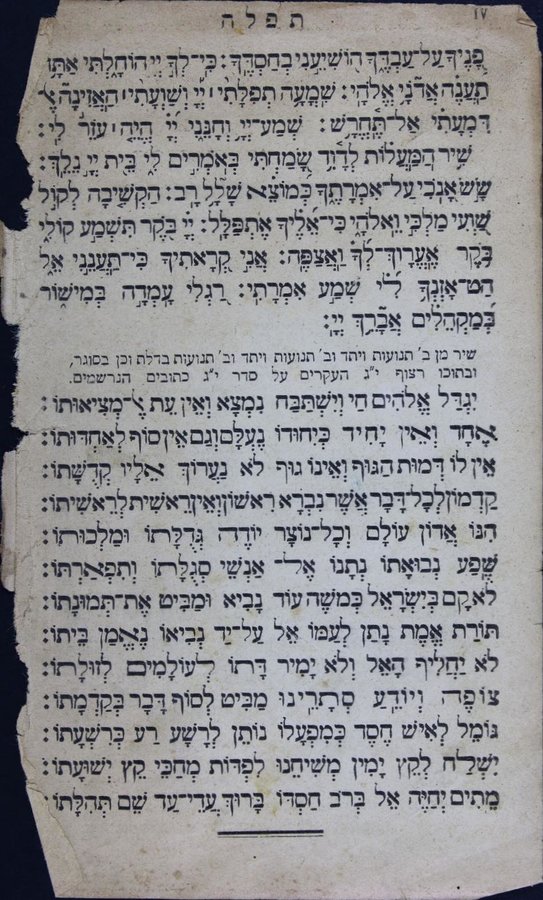 תפלה
פָנֶיךָ עַל־עַבְדֶּךָ הוֹשִׁיעֵנִי בְחַסְדֶּךָ׃ כִּי־לְךָ יְיָ הוֹחָלְתִּי אַתָּה
תַעֲנֶה אֲדֹנָי אֱלֹהָי׃ שִׁמְעָה תְפִלָּתִי יְיָ וְשַׁוְעָתִי הַאֲזִינָה אֶל
דִּמְעָתִי אַל־תֶּחֱרַשׁ׃ שְׁמַע־יְיָ וְחָנֵּנִי יְיָ הֱיֵה עוֹזֵר לִי׃
שִׁיר הַמַּעֲלוֹת לְדָוִד שָׂמַחְתִּי בְּאֹמְרִים לִי בֵּית יְיָ נֵלֵךְ׃
שָׂשׂ אָנֹכִי עַל־אִמְרָתֶךָ כְּמוֹצֵא שָׁלָל רָב׃ הַקְשִׁיבָה לְקוֹל
שַׁוְעִי מַלְכִּי וֵאלֹהָי כִּי־אֵלֶיךָ אֶתְפַּלָּל׃ יְיָ בֹּקֶר תִּשְׁמַע קוֹלִי
בֹּקֶר אֶעֱרָךְ־לְךָ וַאֲצַפֶּה׃ אֲנִי קְרָאתִיךָ כִּי־תַעֲנֵנִי אֵל
הַט־אָזְנְךָ לִי שְׁמַע אִמְרָתִי׃ רַגְלִי עָמְדָה בְמִישׁוֹר
בְּמַקְהֵלִים אֲבָרֵךְ יְיָ׃
שיר מן ב' תנועות ויתד וב' תנועות ויתד וב' תנועות בדלת וכן בסוגר,
ובתוכו רצוף י״ג העקרים על סדר י״ג כתובים הנרשמים.
יִגְדַּל אֱלֹהִים חַי וְיִשְׁתַּבַּח נִמְצָא וְאֵין עֵת אֶל־מְצִיאוּתוֹ׃
אֶחָד וְאֵין יָחִיד כְּיִחוּדוֹ נֶעְלָם וְגַם אֵין סוֹף לְאַחְדוּתוֹ׃
אֵין לוֹ דְּמוּת הַגּוּף וְאֵינוֹ גוּף לֹא נַעֲרוֹךְ אֵלָיו קְדֻשָּׁתוֹ׃
קַדְמוֹן לְכָל־דָּבָר אֲשֶׁר נִבְרָא רִאשׁוֹן וְאֵין רֵאשִׁית לְרֵאשִׁיתוֹ׃
הִנּוֹ אֲדוֹן עוֹלָם וְכָל־נוֹצָר יוֹרֶה גְּדֻלָּתוֹ וּמַלְכוּתוֹ׃
שֶׁפַע נְבוּאָתוֹ נְתָנוֹ אֶל־ אַנְשֵׁי סְגֻלָּתוֹ וְתִפְאַרְתּוֹ׃
לֹא קָם בְּיִשְׂרָאֵל כְּמֹשֶׁה עוֹד נָבִיא וּמַבִּיט אֶת־תְּמוּנָתוֹ׃
תּוֹרַת אֱמֶת נָתַן לְעַמּוֹ אֵל עַל־יַד נְבִיאוֹ נֶאֱמַן בֵּיתוֹ׃
לֹא יַחֲלִיף הָאֵל וְלֹא יָמִיר דָּתוֹ לְעוֹלָמִים לְזוּלָתוֹ׃
צוֹפֶה וְיוֹדֵעַ סְתָרֵינוּ מַבִּיט לְסוֹף דָּבָר בְּקַדְמָתוֹ׃
גּוֹמֵל לְאִישׁ חֶסֶד כְּמִפְעָלוֹ נוֹתֵן לְרָשָׁע רַע כְּרִשְׁעָתוֹ׃
יִשְׁלַח לְקֵץ יָמִין מְשִׁיחֵנוּ לִפְדּוֹת מְחַכֵּי קֵץ יְשׁוּעָתוֹ׃
מֵתִים יְחַיֶּה אֵל בְּרֹב חַסְדּוֹ בָּרוּךְ עֲדֵי־עַד שֵׁם תְּהִלָּתוֹ׃